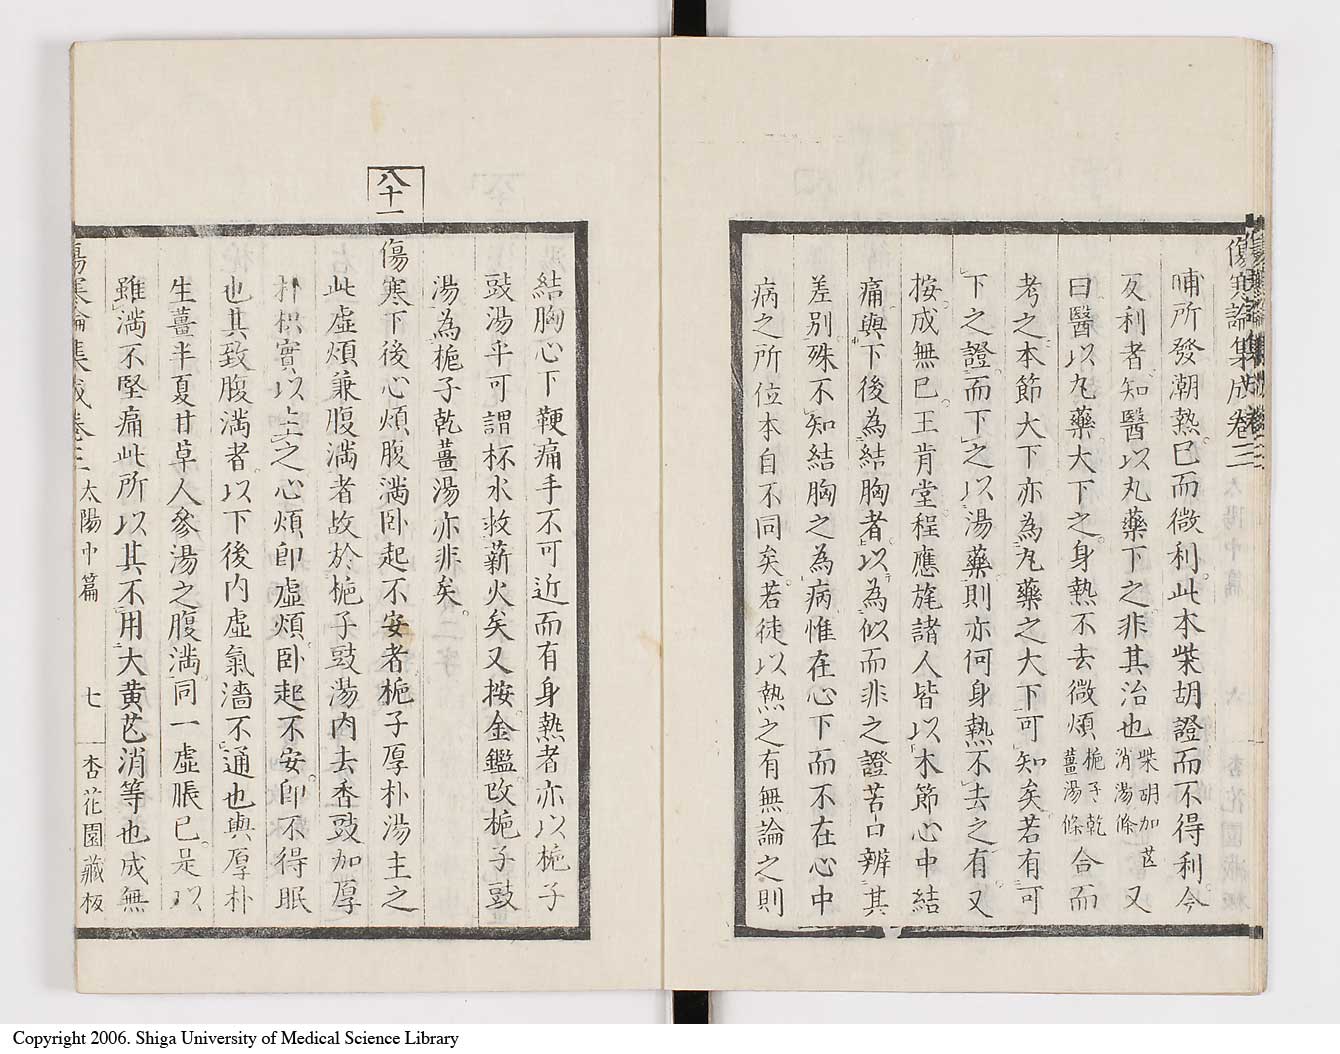 傷寒論集成卷三
晡所發潮熱已而微利此本柴胡證而不得利今
反利者知醫以丸藥下之非其治也柴胡加芒消湯條又
曰醫以丸藥大下之身熱不去微煩梔子乾薑湯條合而
考之本節大下亦為丸藥之大下可知矣若有可
下之證而下之以湯藥則亦何身熱不去之有又
按成無已王肯堂程應旄諸人皆以本節心中結
痛與下後為結胸者以為似而非之證苦口辨其
差別殊不知結胸之為病惟在心下而不在心中
病之所位本自不同矣若徒以熱之有無論之則
結胸心下鞕痛手不可近而有身熱者亦以梔子
豉湯乎可謂杯水救薪火矣又按金鑑改梔子豉
湯為梔子乾薑湯亦非矣
八十一
傷寒下後心煩腹滿卧起不安者梔子厚朴湯主之
此虛煩兼腹滿者故於梔子豉湯內去香豉加厚
朴枳實以主之心煩即虛煩卧起不安即不得眠
也其致腹滿者以下後內虛氣濇不通也與厚朴
生薑半夏甘草人參湯之腹滿同一虛脹已是以
雖滿不堅痛此所以其不用大黃芒消等也成無
傷寒論集成卷三 太陽中篇 七 杏花園藏板
Copyright 2006. Shiga University of Medical Science Library